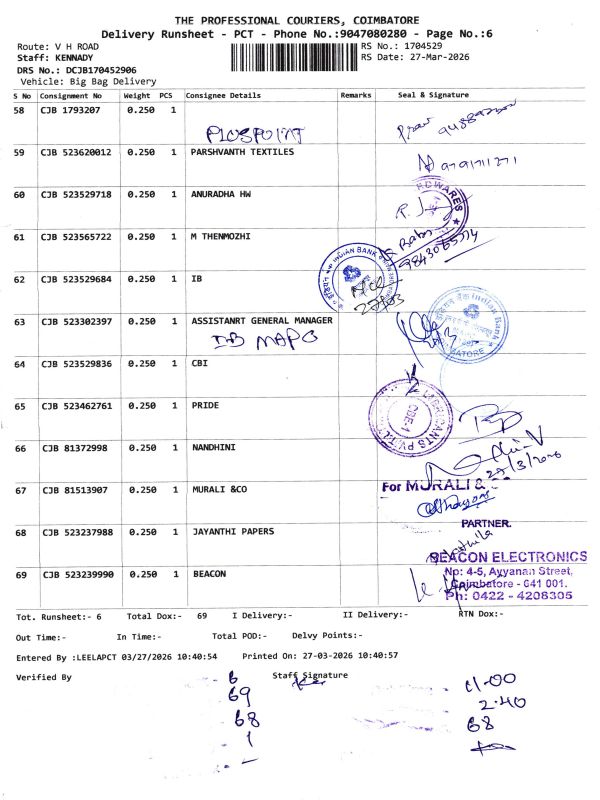 THE PROFESSIONAL COURIERS, COIMBATORE
Delivery Runsheet - PCT - Phone No.:9047080280 - Page No.:6
Route: V H ROAD
RS No.: 1704529
Staff: KENNADY
RS Date: 27-Mar-2026
DRS No.: DCJB170452906
Vehicle: Big Bag Delivery
S No Consignment No Weight PCS Consignee Details Remarks Seal & Signature
58 CJB 1793207 0.250 1
PLUSPOINT
59 CJB 523620012 0.250 1 PARSHVANTH TEXTILES
60 CJB 523529718 0.250 1 ANURADHA HW
RDWARES
R. J
61 CJB 523565722 0.250 1 M THENMOZHI
INDIAN BANK
62 CJB 523529684 0.250 1 IB
27/03
Indian Bank
63 CJB 523302397 0.250 1 ASSISTANRT GENERAL MANAGER
IB MAPC
BATORE
64 CJB 523529836 0.250 1 CBI
65 CJB 523462761 0.250 1 PRIDE
LUBRICANTS PVT.LTD
CBE-1
66 CJB 81372998 0.250 1 NANDHINI
27/3/2026
67 CJB 81513907 0.250 1 MURALI &CO
For MURALI &
PARTNER.
68 CJB 523237988 0.250 1 JAYANTHI PAPERS
BEACON ELECTRONICS
69 CJB 523239990 0.250 1 BEACON
No: 4-5, Ayyanan Street,
Coimbatore - 641 001.
Ph: 0422 - 4208305
Tot. Runsheet:- 6 Total Dox:- 69 I Delivery:- II Delivery:- RTN Dox:-
Out Time:- In Time:- Total POD:- Delvy Points:-
Entered By :LEELAPCT 03/27/2026 10:40:54 Printed On: 27-03-2026 10:40:57
Verified By Staff Signature
6 11-00
69 2-40
68 68
1